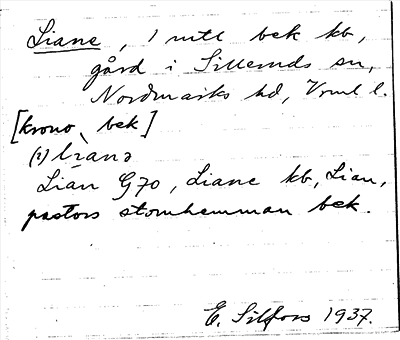 Liane, 1 mtl bek kb,
gård i Silleruds sn,
Nordmarks hd, Vrml l.
[krono, bek]
(2) li̇̀anə
Lian G70, Liane kb, Lian,
pastors stomhemman bek.
E. Silfors 1937.